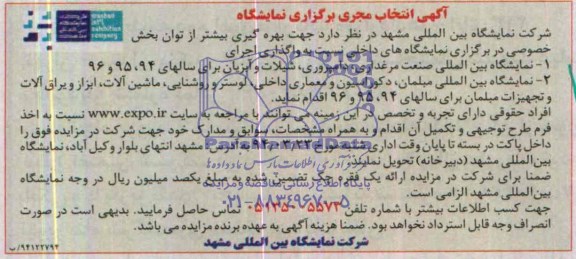 آگهی انتخاب مجری برگزاری نمایشگاه
شرکت نمایشگاه بین المللی مشهد در نظر دارد جهت بهره گیری بیشتر از توان بخش
خصوصی در برگزاری نمایشگاه های داخلی نسبت به واگذاری اجرای
۱- نمایشگاه بین المللی صنعت مرغداری، دامپروری، شیلات و آبزیان برای سالهای ۹۴، ۹۵ و ۹۶
۲- نمایشگاه بین المللی مبلمان، دکوراسیون و معماری داخلی، لوستر و روشنایی، ماشین آلات، ابزار و یراق آلات
و تجهیزات مبلمان برای سالهای ۹۴، ۹۵ و ۹۶ اقدام نماید.
افراد حقوقی دارای تجربه و تخصص در این زمینه می توانند با مراجعه به سایت www.expo.ir نسبت به اخذ
فرم طرح توجیهی و تکمیل آن اقدام و به همراه مشخصات، سوابق و مدارک خود جهت شرکت در مزایده فوق را
داخل پاکت در بسته تا پایان وقت اداری شنبه مورخ ۹۴/۰۳/۲۳ به آدرس: مشهد انتهای بلوار وکیل آباد، نمایشگاه
بین‌المللی مشهد (دبیرخانه) تحویل نمایند.
ضمنا برای شرکت در مزایده ارائه یک فقره چک تضمین شده به مبلغ یکصد میلیون ریال در وجه نمایشگاه
بین‌المللی مشهد الزامی است.
جهت کسب اطلاعات بیشتر با شماره تلفن تماس حاصل فرمایید. بدیهی است در صورت
انصراف وجه قابل استرداد نخواهد بود. ضمنا هزینه آگهی به عهده برنده مزایده می باشد.
شرکت نمایشگاه بین المللی مشهد
۹۴۱۲۲۷۹۲/ب
mashad
int'l
exhibition
company
پایگاه اطلاع رسانی مناقصه و مزایده
۰۲۱-۸۸۳۴۹۶۷۰-۵